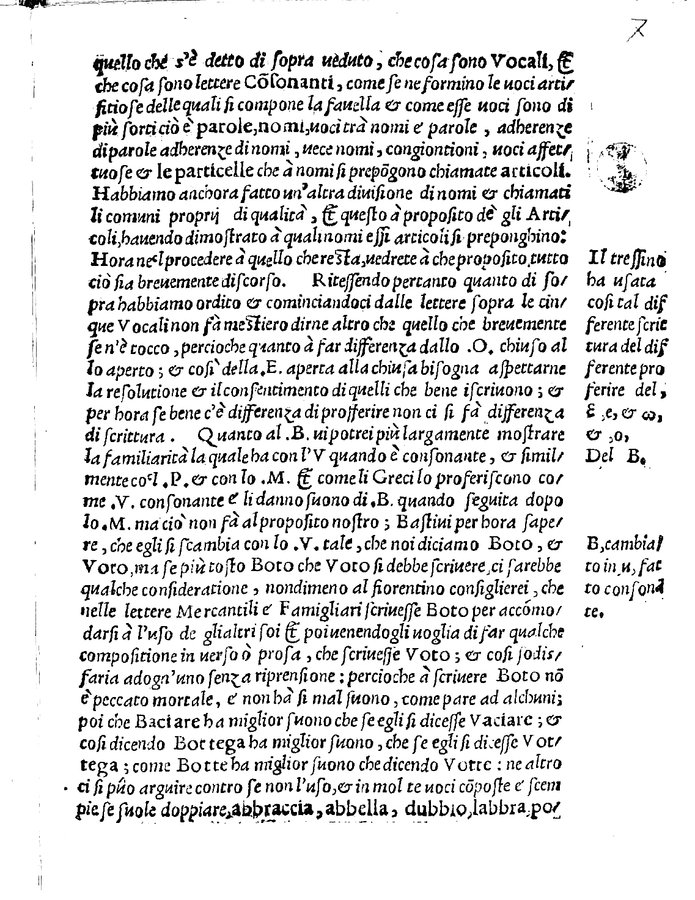 7
quello che s'è detto di sopra ueduto, che cosa sono Vocali, &
che cosa sono lettere Cõsonanti, come se ne formino le uoci arti/
fitiose delle quali si compone la fauella & come esse uoci sono di
più sorti ciò è parole, nomi, uoci trà nomi e parole, adherenze
di parole adherenze di nomi, uece nomi, congiontioni, uoci affet/
tuose & le particelle che à nomi si prepõgono chiamate articoli.
Habbiamo anchora fatto un'altra diuisione di nomi & chiamati
li comuni proprij di qualità, & questo à proposito dè gli Arti/
coli, hauendo dimostrato à quali nomi essi articoli si preponghino:
Hora nel procedere à quello che resta, uedrete à che proposito tutto
ciò sia breuemente discorso. Ritessendo pertanto quanto di so/
pra habbiamo ordito & cominciandoci dalle lettere sopra le cin/
que Vocali non fà mestiero dirne altro che quello che breuemente
se n'è tocco, percioche quanto à far differenza dallo .O. chiuso al
lo aperto; & cosi della .E. aperta alla chiusa bisogna aspettarne
la resolutione & il consentimento di quelli che bene iscriuono; &
per hora se bene c'è differenza di profferire non ci si fà differenza
di scrittura. Quanto al .B. ui potrei più largamente mostrare
la familiarità la quale ha con l'V quando è consonante, & simil/
mente col .P. & con lo .M. & come li Greci lo proferiscono co/
me .V. consonante e li danno suono di .B. quando seguita dopo
lo .M. ma ciò non fà al proposito nostro; Bastiui per hora sape/
re, che egli si scambia con lo .V. tale, che noi diciamo Boto, &
Voto, ma se più tosto Boto che Voto si debbe scriuere, ci sarebbe
qualche consideratione, nondimeno al fiorentino consiglierei, che
nelle lettere Mercantili e Famigliari scriuesse Boto per accómo/
darsi à l'uso de gli altri soi & poi uenendogli uoglia di far qualche
compositione in uerso ò prosa, che scriuesse Voto; & cosi sodis/
faria ad ogn'uno senza riprensione: percioche à scriuere Boto nõ
è peccato mortale, e non hà si mal suono, come pare ad alchuni;
poi che Baciare ha miglior suono che se egli si dicesse Vaciare; &
cosi dicendo Bottega ha miglior suono, che se egli si dicesse Vot/
tega; come Botte ha miglior suono che dicendo Votte: ne altro
ci si pùo arguire contro se non l'uso, & in mol te uoci cõposte e scem
pie se suole doppiare, abbraccia, abbella, dubbio, labbra, po/
Il tressino
ha usata
cosi tal dif
ferente scrit
tura del dif
ferente pro
ferire del,
ε, e, & ω,
& o,
Del B.
B, cambia/
to in u, fat
to consona
te.